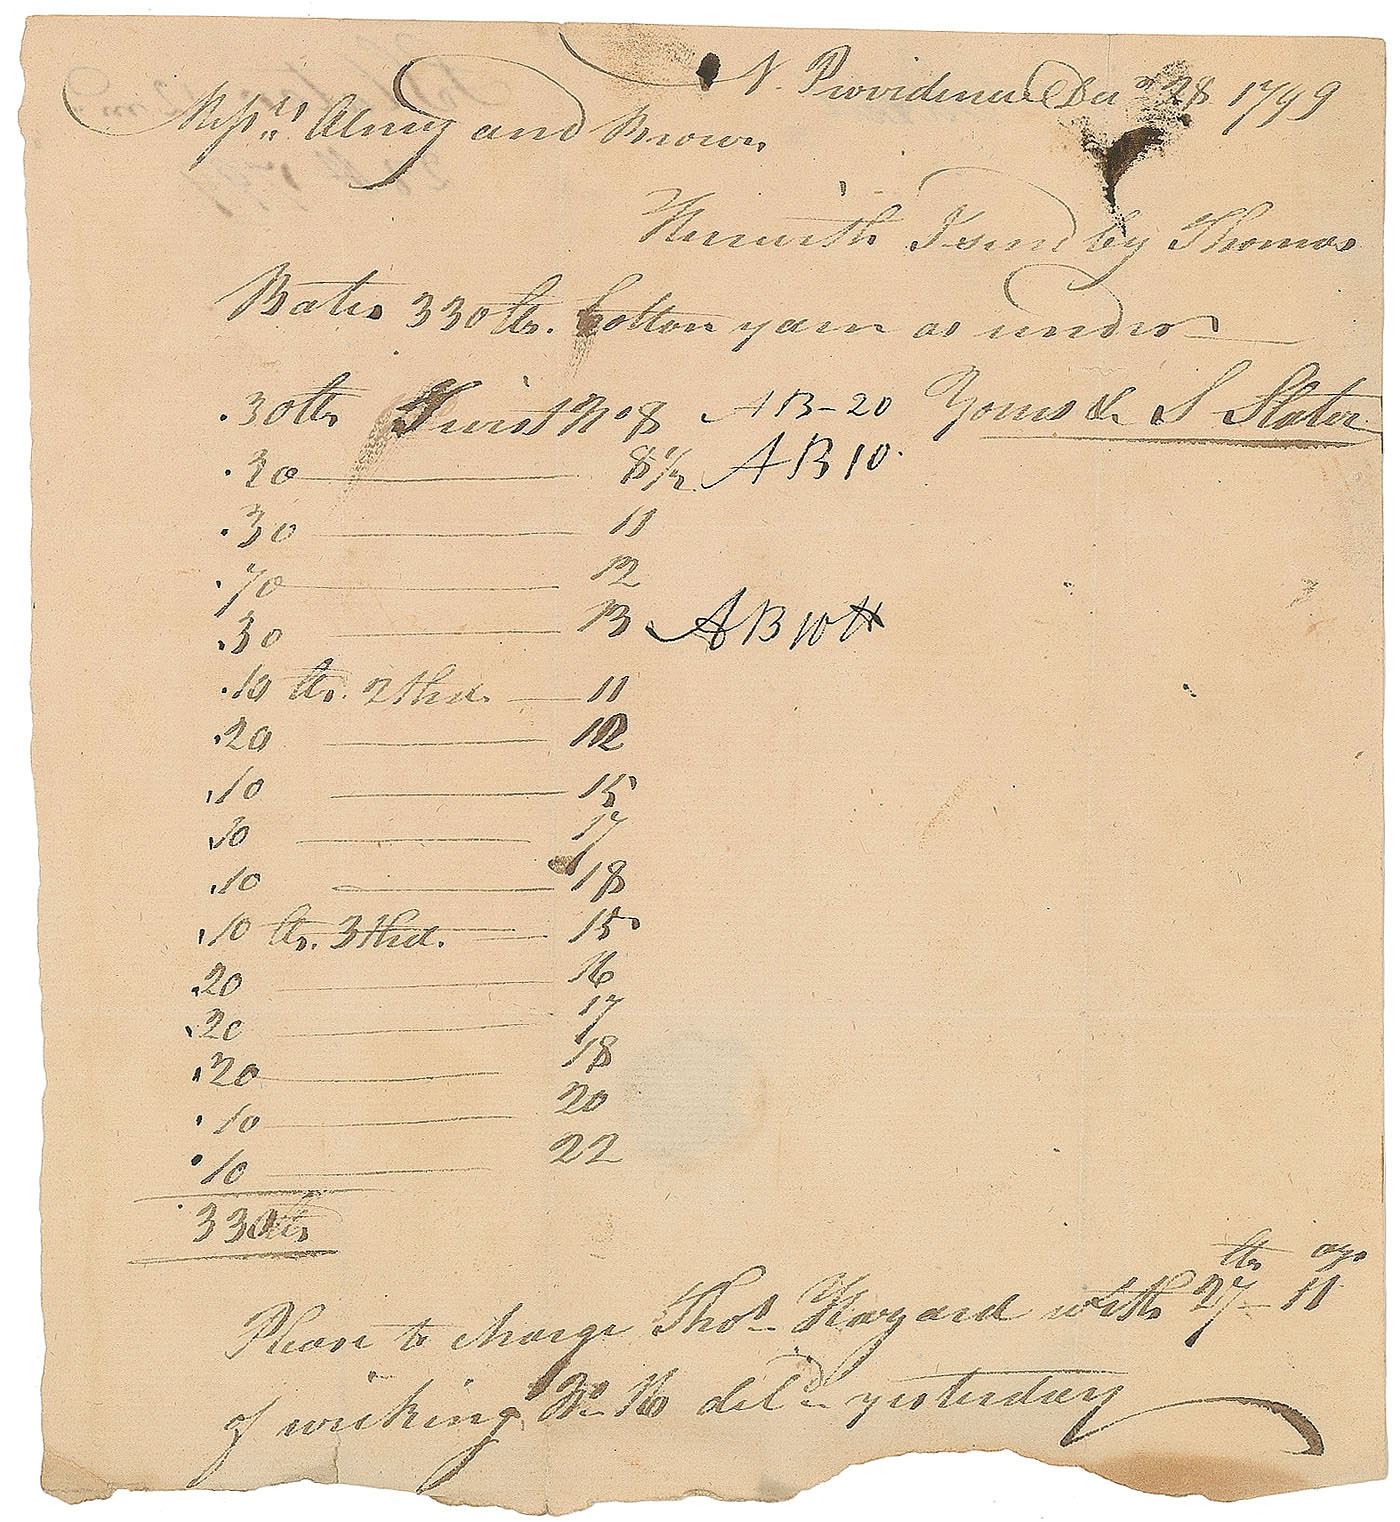 N. Providence Decr 28 1799
Messrs Almy and Brown
Herewith I send by Thomas
Bates 330 lbs. Cotton yarn as under
30 lbs Twist No 8 AB-20 Yours &c S Slater
30 8 1/2 AB 10
30 11
70 12
30 13 AB 10 H
10 lbs. 2 thd. 11
20 12
10 15
10 17
10 18
10 lbs. 3 thd. 15
20 16
20 17
20 18
10 20
10 22
330 lbs
lbs ozs
Please to charge Thos Hazard with 27 - 11
of wicking No 16 deld yesterday